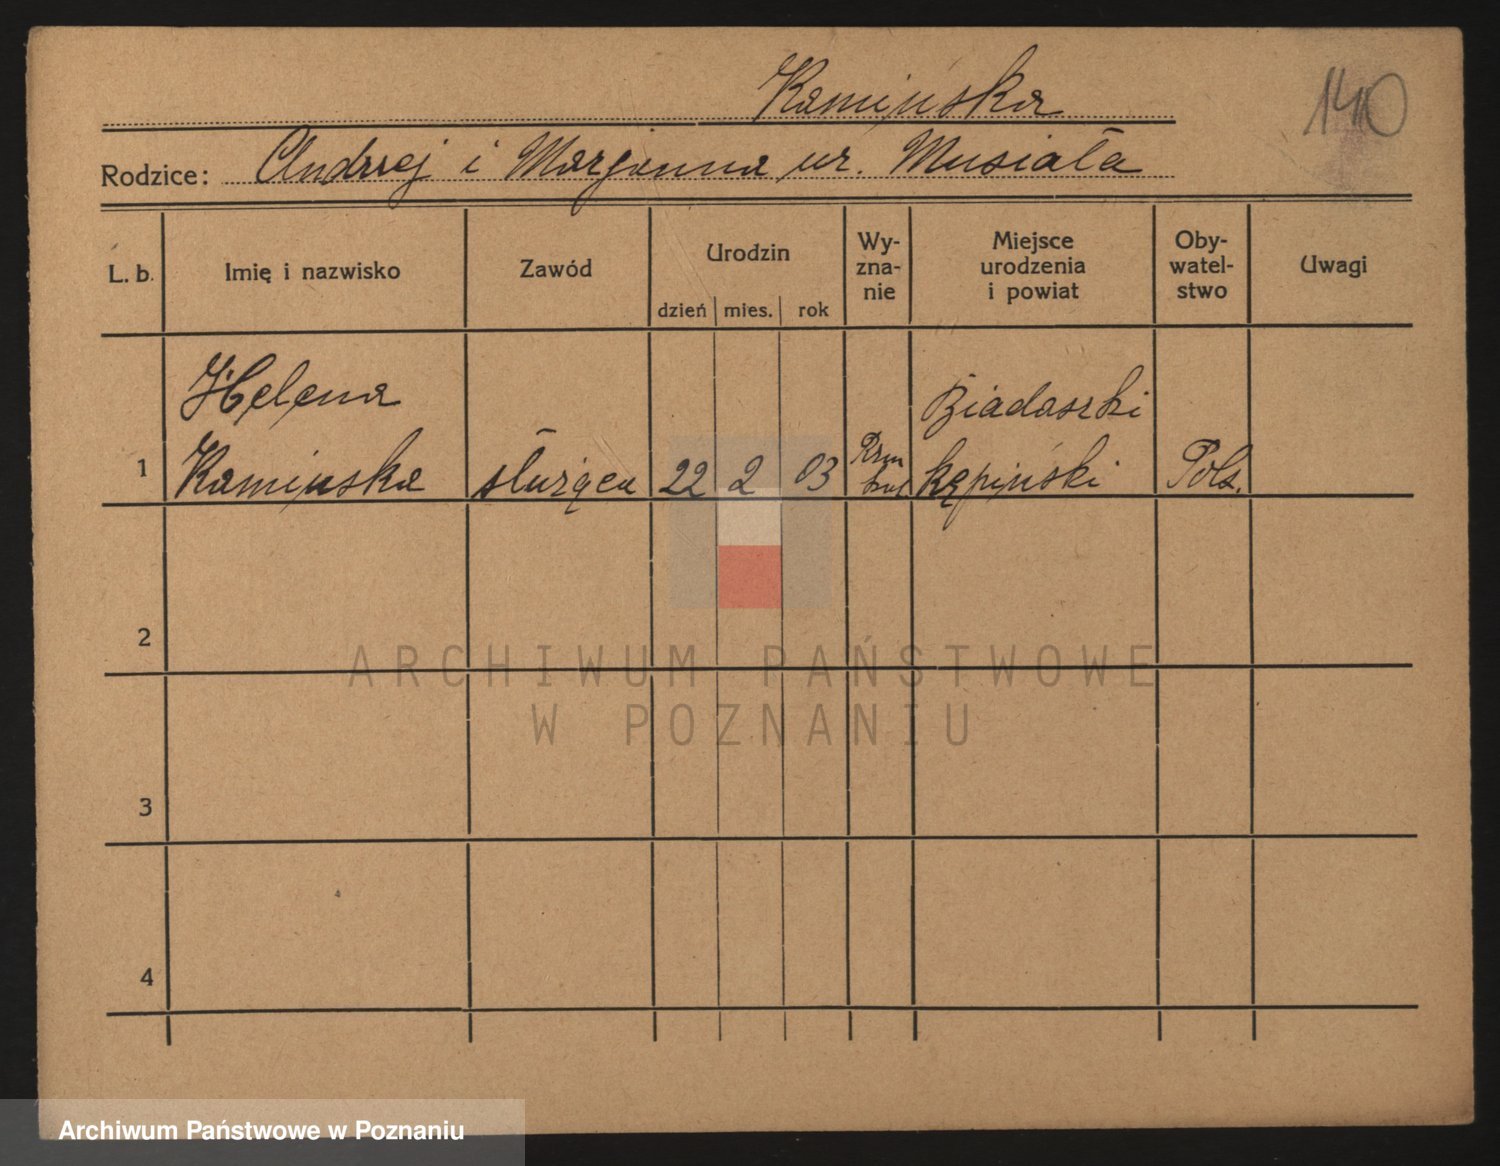 Kamińska
140
Rodzice: Andrzej i Marjanna ur. Musiała
L. b. Imię i nazwisko Zawód Urodzin dzień mies. rok Wy-zna-nie Miejsce urodzenia i powiat Oby-watel-stwo Uwagi
Helena Biadaszki
1 Kamińska służąca 22 2 03 Rzm kat kępiński Pols.
2
3
4
ARCHIWUM PAŃSTWOWE
W POZNANIU
Archiwum Państwowe w Poznaniu